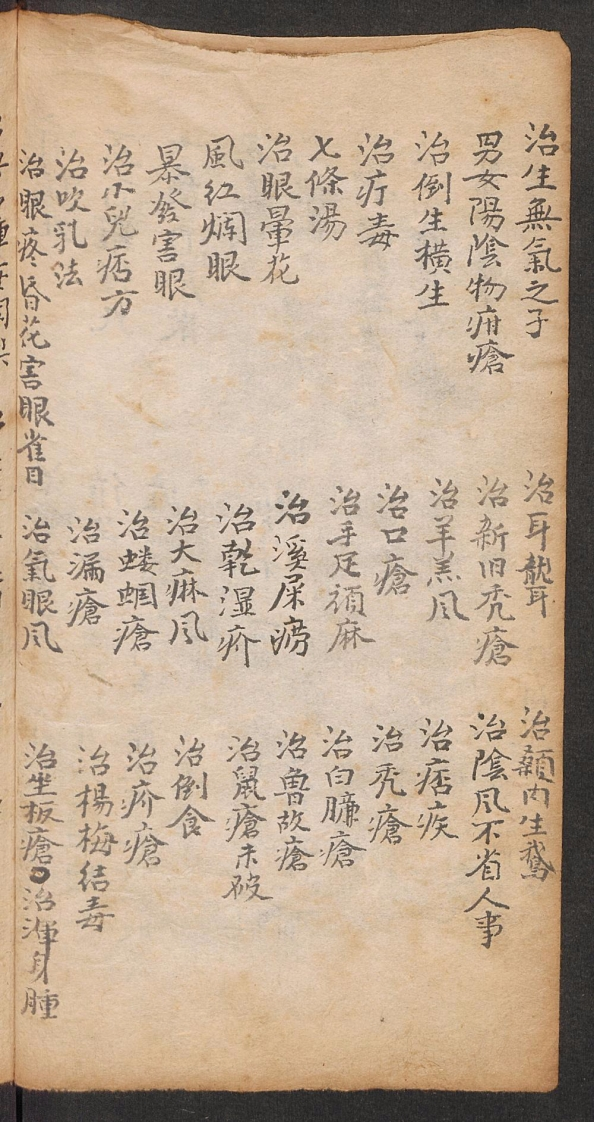 治生無氣之子
治耳𦕈耳
治顙内生鵝
男女陽陰物疳瘡
治新旧禿瘡
治陰风不省人事
治倒生橫生
治羊羔风
治痞疾
治疔毒
治口瘡
治禿瘡
七條湯
治手足頑麻
治白臁瘡
治眼暈花
治溪屎癆
治魯故瘡
風红爛眼
治乾湿疥
治鼠瘡未破
暴發害眼
治大麻风
治倒食
治小兒痞方
治蝼蝈瘡
治疥瘡
治吹乳法
治漏瘡
治楊梅结毒
治眼疼昏花害眼雀目
治氣眼风
治坐板瘡○治渾身腫